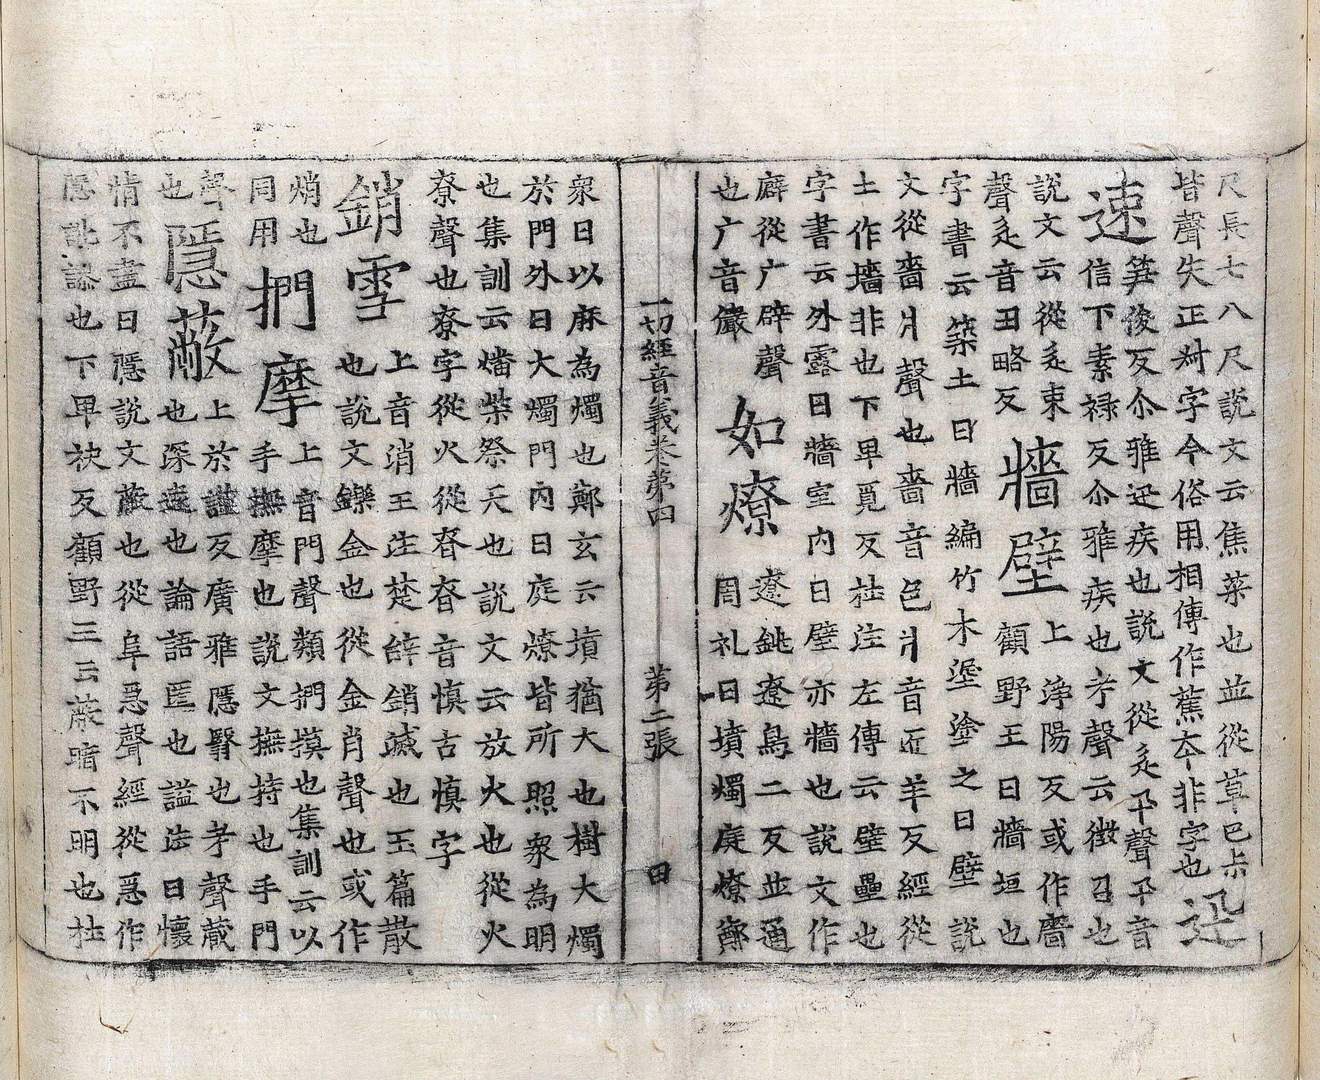 尺長七八尺說文云焦菜也並從草巴𡵂
皆聲失正𣗥字今俗用相傳作蕉夲非字也迅
速笋俊反尒雅迅疾也說文從辵卂聲卂音
信下素禄反尒雅疾也考聲云徴召也
說文云從辵束
聲辵音丑略反牆壁上淨陽反或作廧
顧野王曰牆垣也
字書云築土曰牆編竹木埿塗之曰壁說
文從嗇爿聲也嗇音色爿音匠羊反經從
土作墻非也下𤰞覓反杜注左傳云壁壘也
字書云外露曰牆室内曰壁亦牆也說文作
廦從广辟聲
也广音儼如燎遼銚遼鳥二反並通
周礼曰墳燭庭燎鄭
一切經音義卷第四　第二張　田
衆曰以麻為燭也鄭玄云墳猶大也樹大燭
於門外曰大燭門内曰庭燎皆所照衆為明
也集訓云燔柴祭天也說文云放火也從火
尞聲也尞字從火從昚昚音慎古慎字
銷雪上音消王注楚辝銷滅也玉篇散
也說文鑠金也從金肖聲也或作
焇也
同用捫摩上音門聲類捫摸也集訓云以
手撫摩也說文撫持也手門
聲隱蔽上於謹反廣雅隱翳也考聲蔵
也深遠也論語匿也謚法曰懷
情不盡曰隱說文蔽也從阜㥯聲經從㥯作
隱訛謬也下𤰞袂反顧野王云蔽暗不明也杜